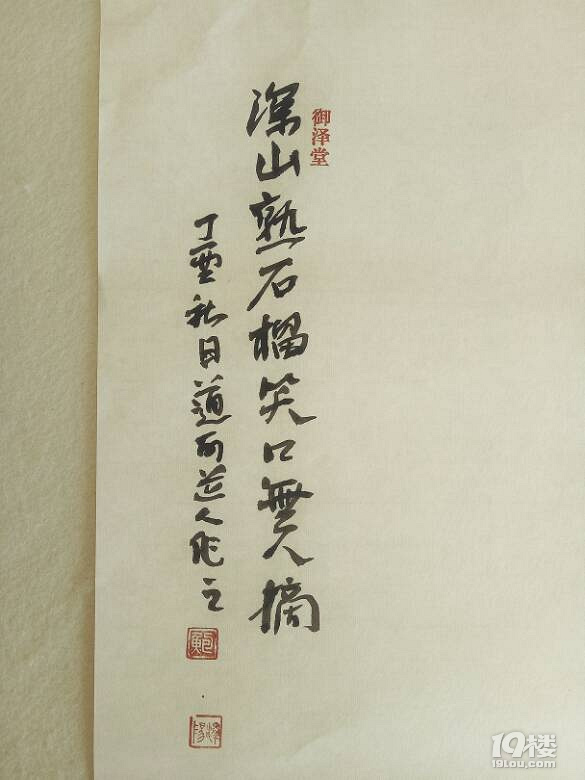 御泽堂
深山熟石榴笑口無人摘
丁酉秋日道人作之
鮑
19楼
19lou.com